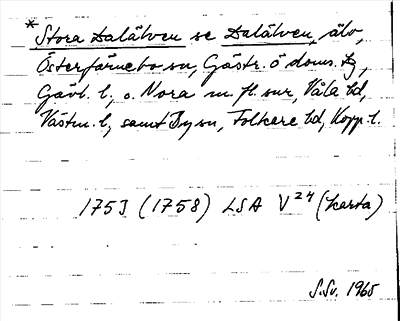 * Stora Dalälven se Dalälven, älv,
Österfärnebo sn, Gästr. ö doms. hd,
Gävl. l., o. Nora m. fl. snr, Våla hd,
Västm. l., samt By sn, Folkare hd, Kopp. l.
1753 (1758) LSA V 24 (karta)
S.Sv. 1965